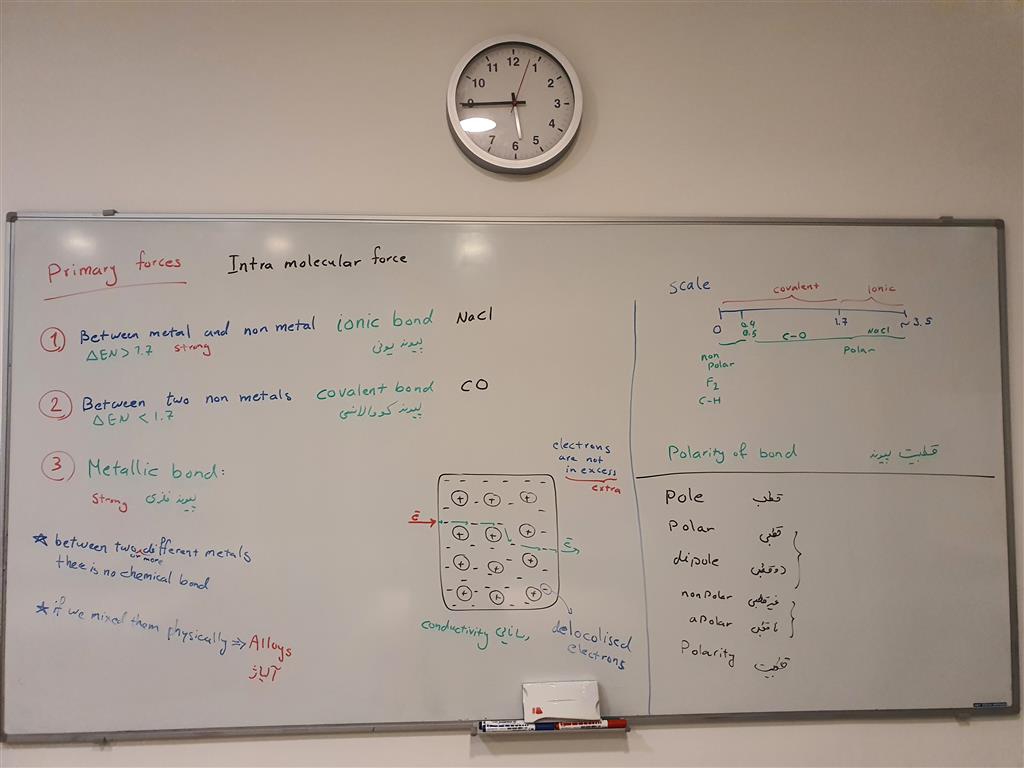 12
1
2
3
4
5
6
7
9
10
11
Primary forces Intra molecular force
1 Between metal and non metal ionic bond NaCl
ΔEN > 1.7 strong پیوند یونی
2 Between two non metals covalent bond CO
ΔEN < 1.7 پیوند کووالانسی
3 Metallic bond:
strong پیوند فلزی
★ between two different metals
or more
there is no chemical bond
★ if we mixed them physically ⇒ Alloys
آلیاژ
electrons
are not
in excess
extra
ē
ē
conductivity رسانایی
delocolised
electrons
scale
covalent ionic
0 0.4 1.7 ~3.5
0.5 C-O NaCl
non polar Polar
F₂
C-H
Polarity of bond قطبیت پیوند
Pole قطب
Polar قطبی
dipole دوقطبی
non polar غیرقطبی
apolar ناقطبی
Polarity قطبیت